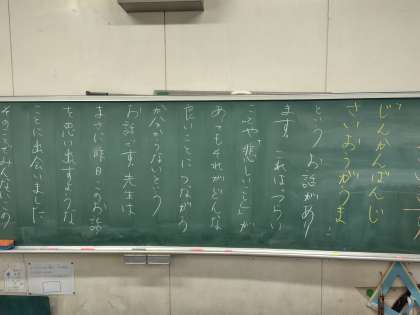 じんかんばんじ
さいおうがうま
というお話があり
ます。これはつらい
ことや「悲しいこと」が
あってもそれがどんな
たいことにつながる
か分からないという
お話です。先生は
まさに昨日このお話
を思い出すような
ことに出会いました
そのことをみんなに